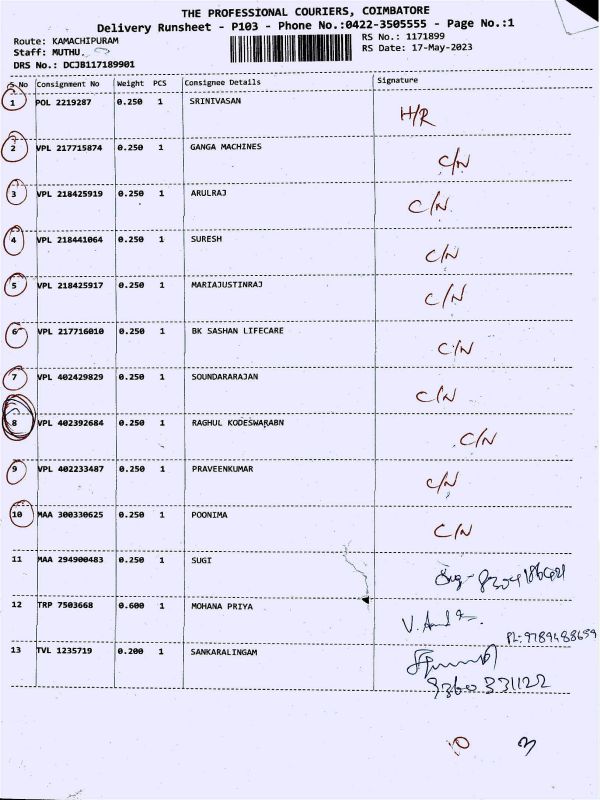 THE PROFESSIONAL COURIERS, COIMBATORE
Delivery Runsheet - P103 - Phone No.:0422-3505555 - Page No.:1
Route: KAMACHIPURAM RS No.: 1171899
Staff: MUTHU. RS Date: 17-May-2023
DRS No.: DCJB117189901
S.No Consignment No Weight PCS Consignee Details Signature
1 POL 2219287 0.250 1 SRINIVASAN H/R
2 VPL 217715874 0.250 1 GANGA MACHINES C/N
3 VPL 218425919 0.250 1 ARULRAJ C/N
4 VPL 218441064 0.250 1 SURESH C/N
5 VPL 218425917 0.250 1 MARIAJUSTINRAJ C/N
6 VPL 217716010 0.250 1 BK SASHAN LIFECARE C/N
7 VPL 402429829 0.250 1 SOUNDARARAJAN C/N
8 VPL 402392684 0.250 1 RAGHUL KODESWARABN C/N
9 VPL 402233487 0.250 1 PRAVEENKUMAR C/N
10 MAA 300330625 0.250 1 POONIMA C/N
11 MAA 294900483 0.250 1 SUGI
12 TRP 7503668 0.600 1 MOHANA PRIYA
PL: 9789488659
13 TVL 1235719 0.200 1 SANKARALINGAM
9360331122
10 3